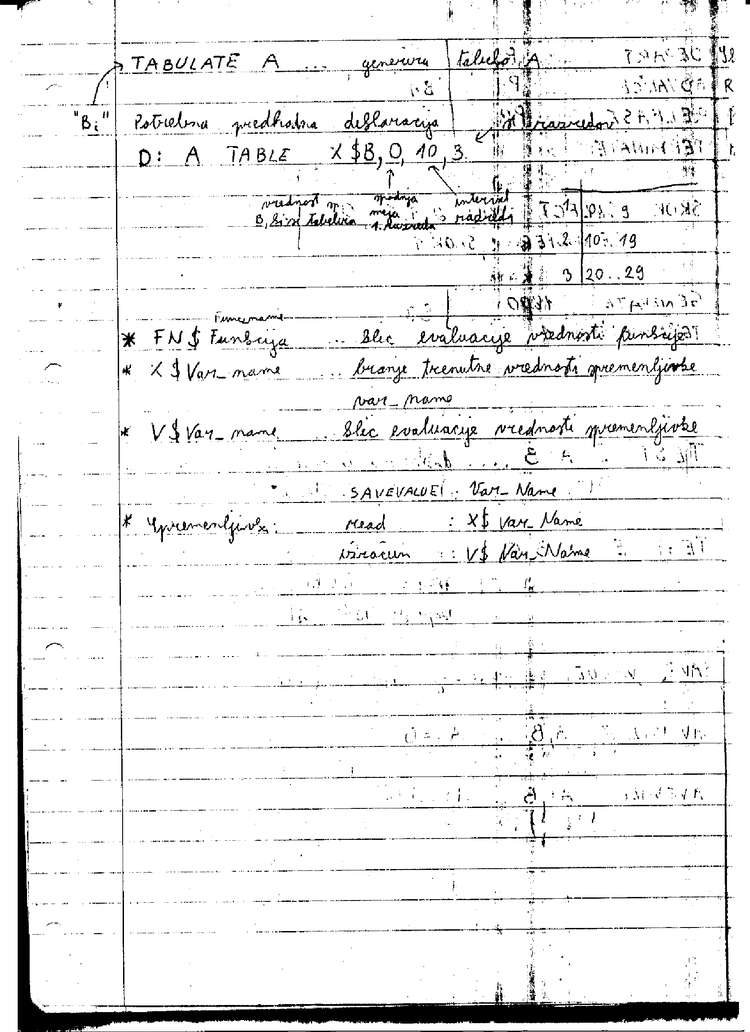 TABULATE A ... generira tabelo A
"Bi"
Potrebna predhodna deklaracija # razredov
D: A TABLE X$B, 0, 10, 3
vrednost sp. spodnja interval
B, ki se tabelira meja razredi
1. razreda
1 0..9
2 10..19
3 20..29
Func_name
* FN$ Funkcija ... klic evaluacije vrednosti funkcije
* X$Var_name ... branje trenutne vrednosti spremenljivke
var_name
* V$Var_name ... klic evaluacije vrednosti spremenljivke
SAVEVALUE : Var_Name
* Spremenljivka: read : X$ Var_Name
izračun : V$ Var_Name